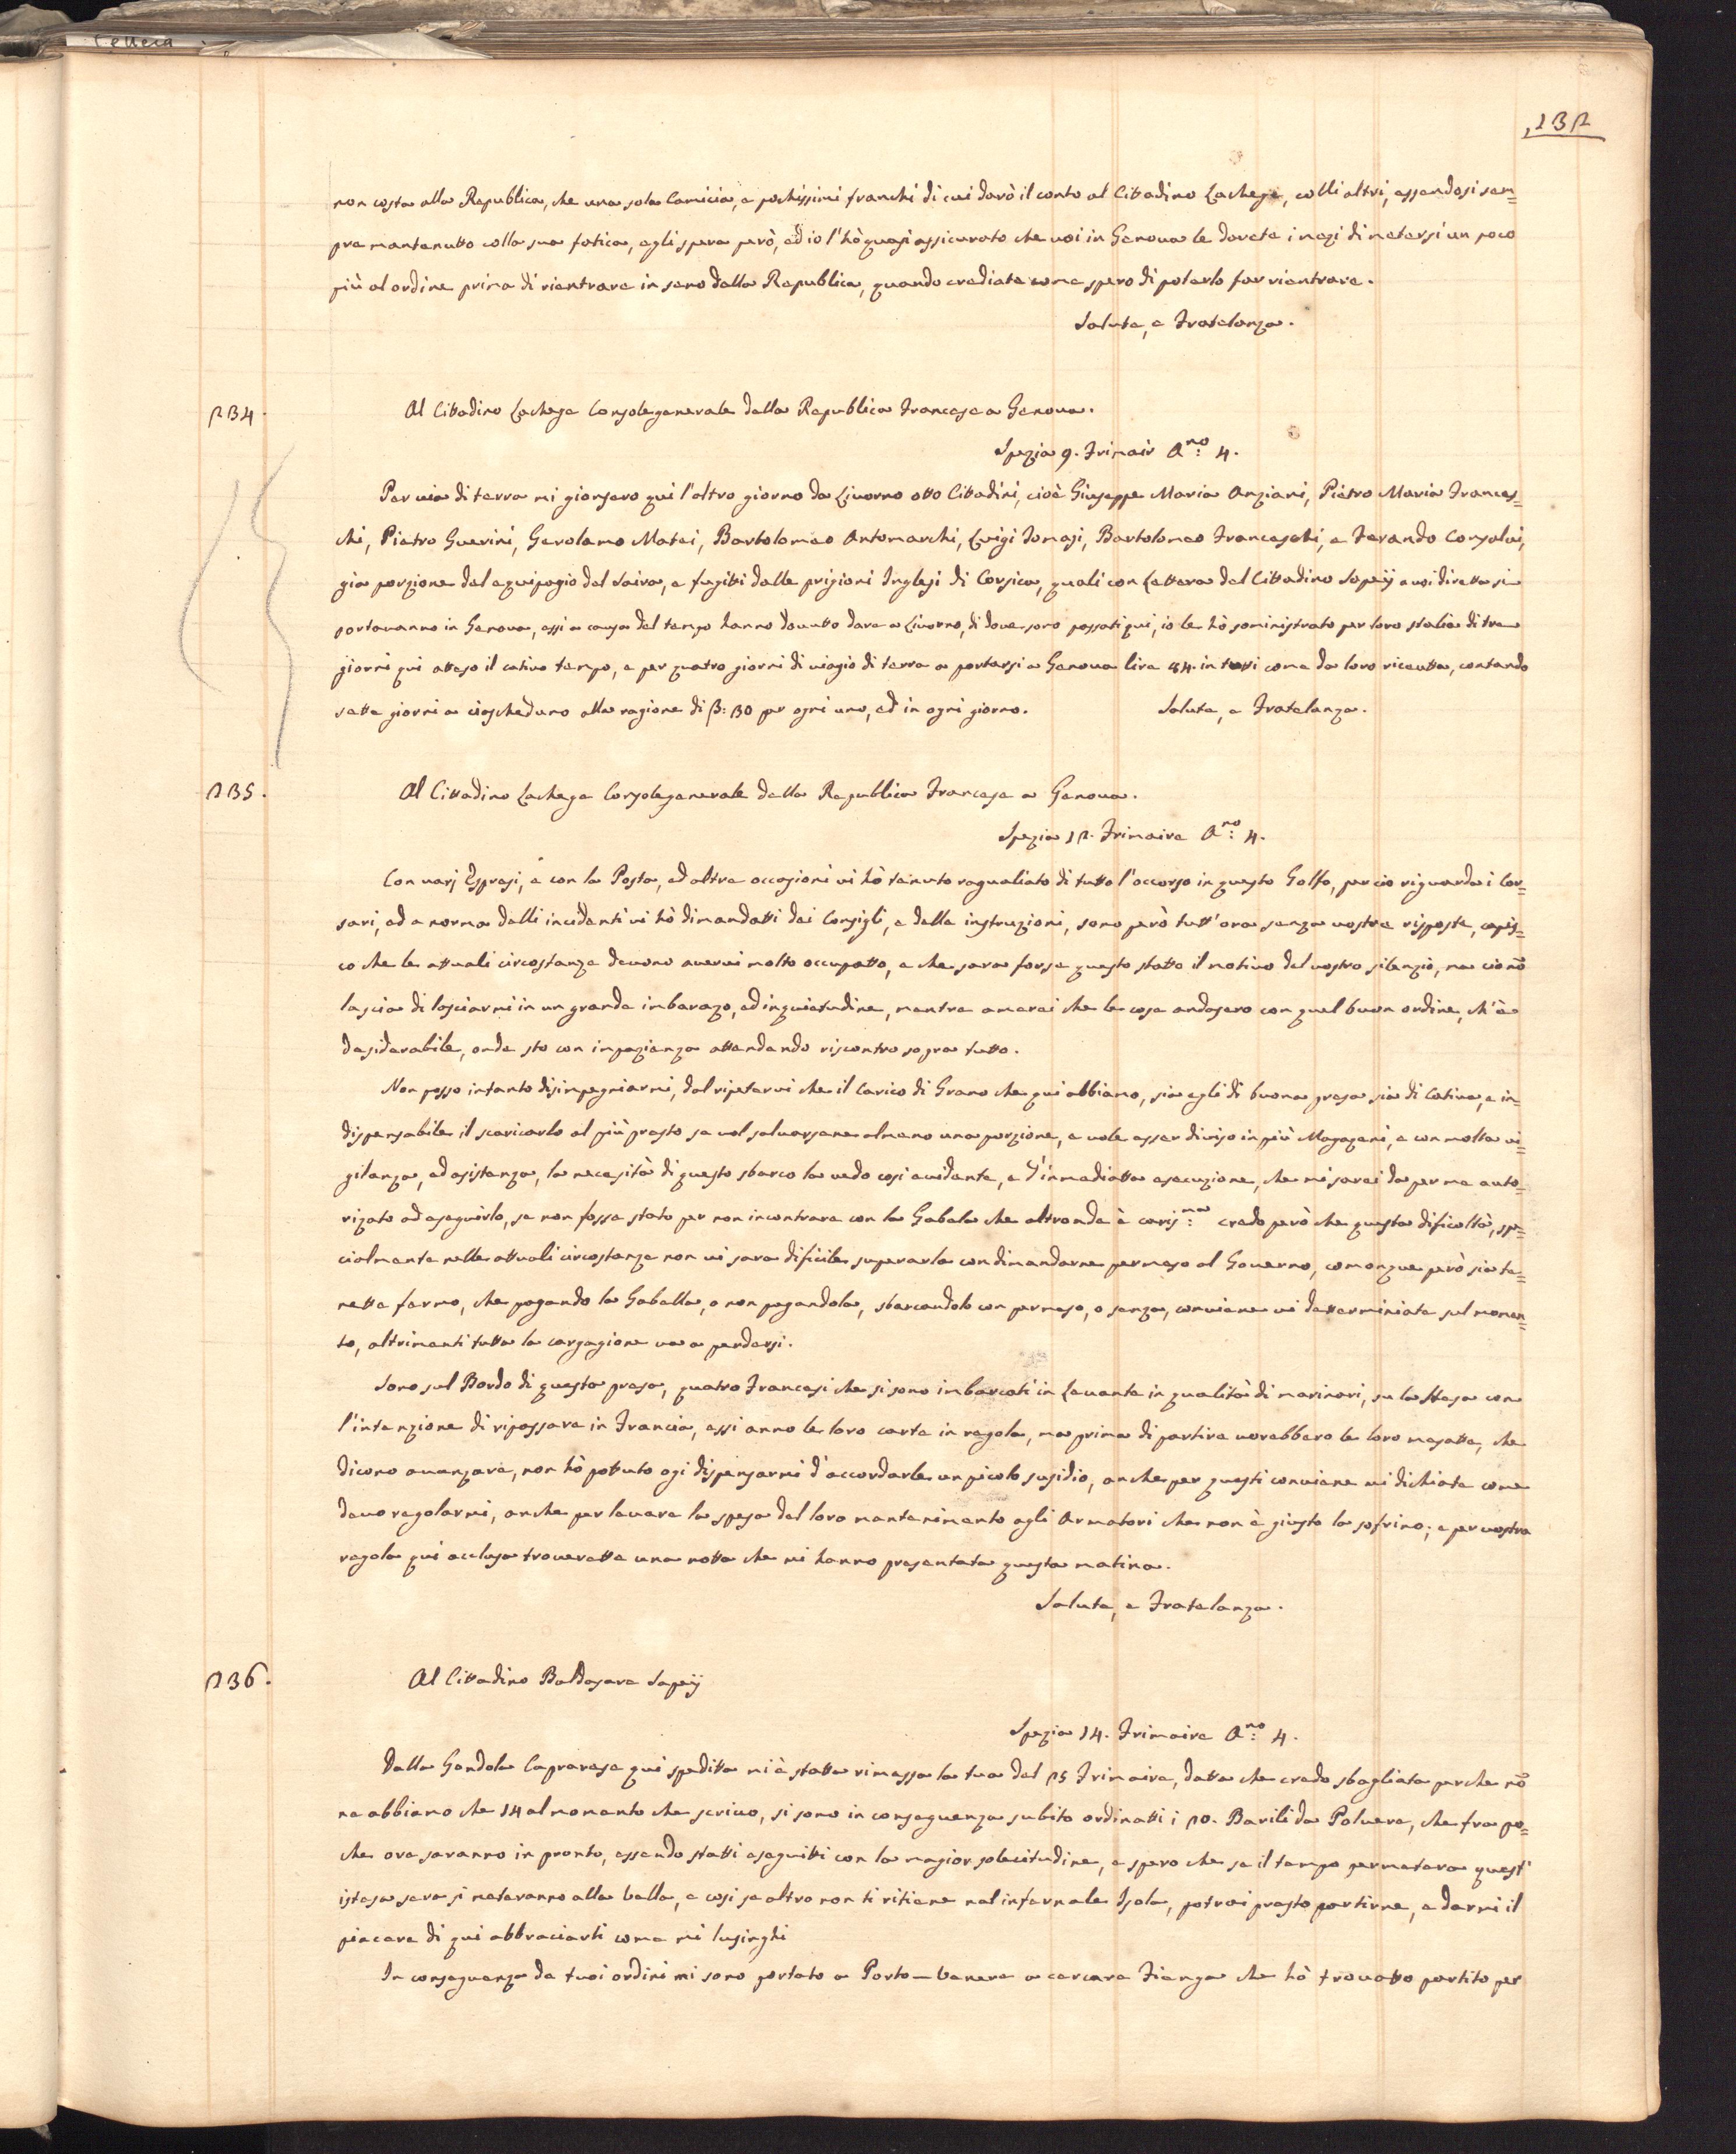 132
non costa alla Republica, che una sola Camicia, e pochissimi franchi di cui darò il conto al Cittadino Lachege, colli altri, essendosi sem=
pre mantenutto colla sua fatica, egli spera però, ed io l'hò quasi assicurato che voi in Genova le darete i mezi di metersi un poco
più al ordine prima di rientrare in seno della Republica, quando crediate come spero di poterlo far rientrare.
Salute, e Fratelanza.
234.
Al Cittadino Lachege Consolegenerale della Republica Francese a Genova.
Spezia 9. Frimair Anno: 4.
Per via di terra mi gionsero qui l'altro giorno da Livorno otto Cittadini, cioè Giuseppe Maria Anziani, Pietro Maria Frances=
chi, Pietro Guerini, Gerolamo Matei, Bartolomeo Antomarchi, Luigi Tomasi, Bartolomeo Franceschi, e Ferando Consalvi,
gia porzione del equipagio del Saira, e fugitti dalle prigioni Inglesi di Corsica, quali con Lettera del Cittadino Sapeÿ a voi diretta si
portavanno in Genova, essi a causa del tempo hanno dovutto dare a Livorno, di dove sono passati qui, io le hò soministrato per loro stalia di tre
giorni qui atteso il cativo tempo, e per quatro giorni di viagio di terra a portarsi a Genova lire 84. in tutti come da loro riceutta, contando
sette giorni a ciascheduno alla ragione di β: 30 per ogni uno, ed in ogni giorno. Salute, e Fratelanza.
235.
Al Cittadino Lachege Consolegenerale della Republica Francese a Genova.
Spezia 12. Frimaire Anno: 4.
Con varj Espresi, e con la Posta, ed altre occasioni vi hò tenuto ragualiato di tutto l'accorso in questo Golfo, per cio riguarda i Cor=
sari, ed a norma delli incidenti vi hò dimandatti dei Consigli, e delle instruzioni, sono però tutt'ora senza vostre risposte, capis=
co che le attuali circostanze devono avervi molto occupatto, e che sara forse questo statto il motivo del vostro silenzio, ma cio nõ
lascia di lasciarmi in un grande imbarazo, ed inquietudine, mentre amarei che le cose andasero con quel buon ordine, ch'è
desiderabile, onde sto con impazienza attendendo riscontro sopra tutto.
Non posso intanto disimpegniarmi, dal ripetervi che il Carico di Grano che qui abbiamo, sia egli di buona presa sia di Cativa, e in=
dispensabile il scaricarlo al più presto se vol salvarsene almeno una porzione, e vole esser diviso in più Magazeni, e con molta vi=
gilanza, ed asistanza, la necesità di questo sbarco la vedo cosi evidente, e l'inmediatta esecuzione, che mi sarei da per me auto=
rizato ad eseguirlo, se non fosse stato per non incontrare con la Gabela che altronde è caris:ma credo però che questa dificoltà, spe=
cialmente nelle attuali circostanze non vi sara dificile superarla con dimandarne permeso al Governo, comonque però sia te=
nette fermo, che pagando la Gabella, o non pagandola, sbarcandolo con permeso, o senza, conviene vi detterminiate sul momen=
to, altrimenti tutta la cargagione va a perdersi.
Sono sul Bordo di questa presa, quatro Francesi che si sono imbarcati in Levante in qualità di marinari, su la stesa con
l'intenzione di ripassare in Francia, essi anno le loro carte in regola, ma prima di partire vorebbero le loro mesatte, che
dicono avanzare, non hò pottuto ogi dispensarmi d'accordarle un picolo susidio, anche per questi conviene mi dichiate come
devo regolarmi, anche per levare la spesa del loro mantenimento agli Armatori che non è giusto la sofrino; e per vostra
regola qui acclusa troverette una notta che mi hanno presentata questa matina.
Salute, e Fratelanza.
236.
Al Cittadino Baldasare Sapeÿ
Spezia 14. Frimaire Anno: 4.
Dalla Gondola Capraresa qui spedita mi è statta rimessa la tua del 25 Frimaire, datta che credo sbagliata perche nõ
ne abbiamo che 14 al momento che scrivo, si sono in conseguenza subito ordinatti i 20. Barili da Polvere, che fra po=
che ore saranno in pronto, essendo statti eseguitti con la magior solecitudine, e spero che se il tempo permetera quest'
istesa sera si meteranno alla vella, e cosi se altro non ti ritiene nel infernale Isola, potrai presto partirne, e darmi il
piacere di qui abbraciarti come mi lusinghi
In conseguenza de tuoi ordini mi sono portato a Porto-Venere a cercare Fianza che hò trovatto partito per